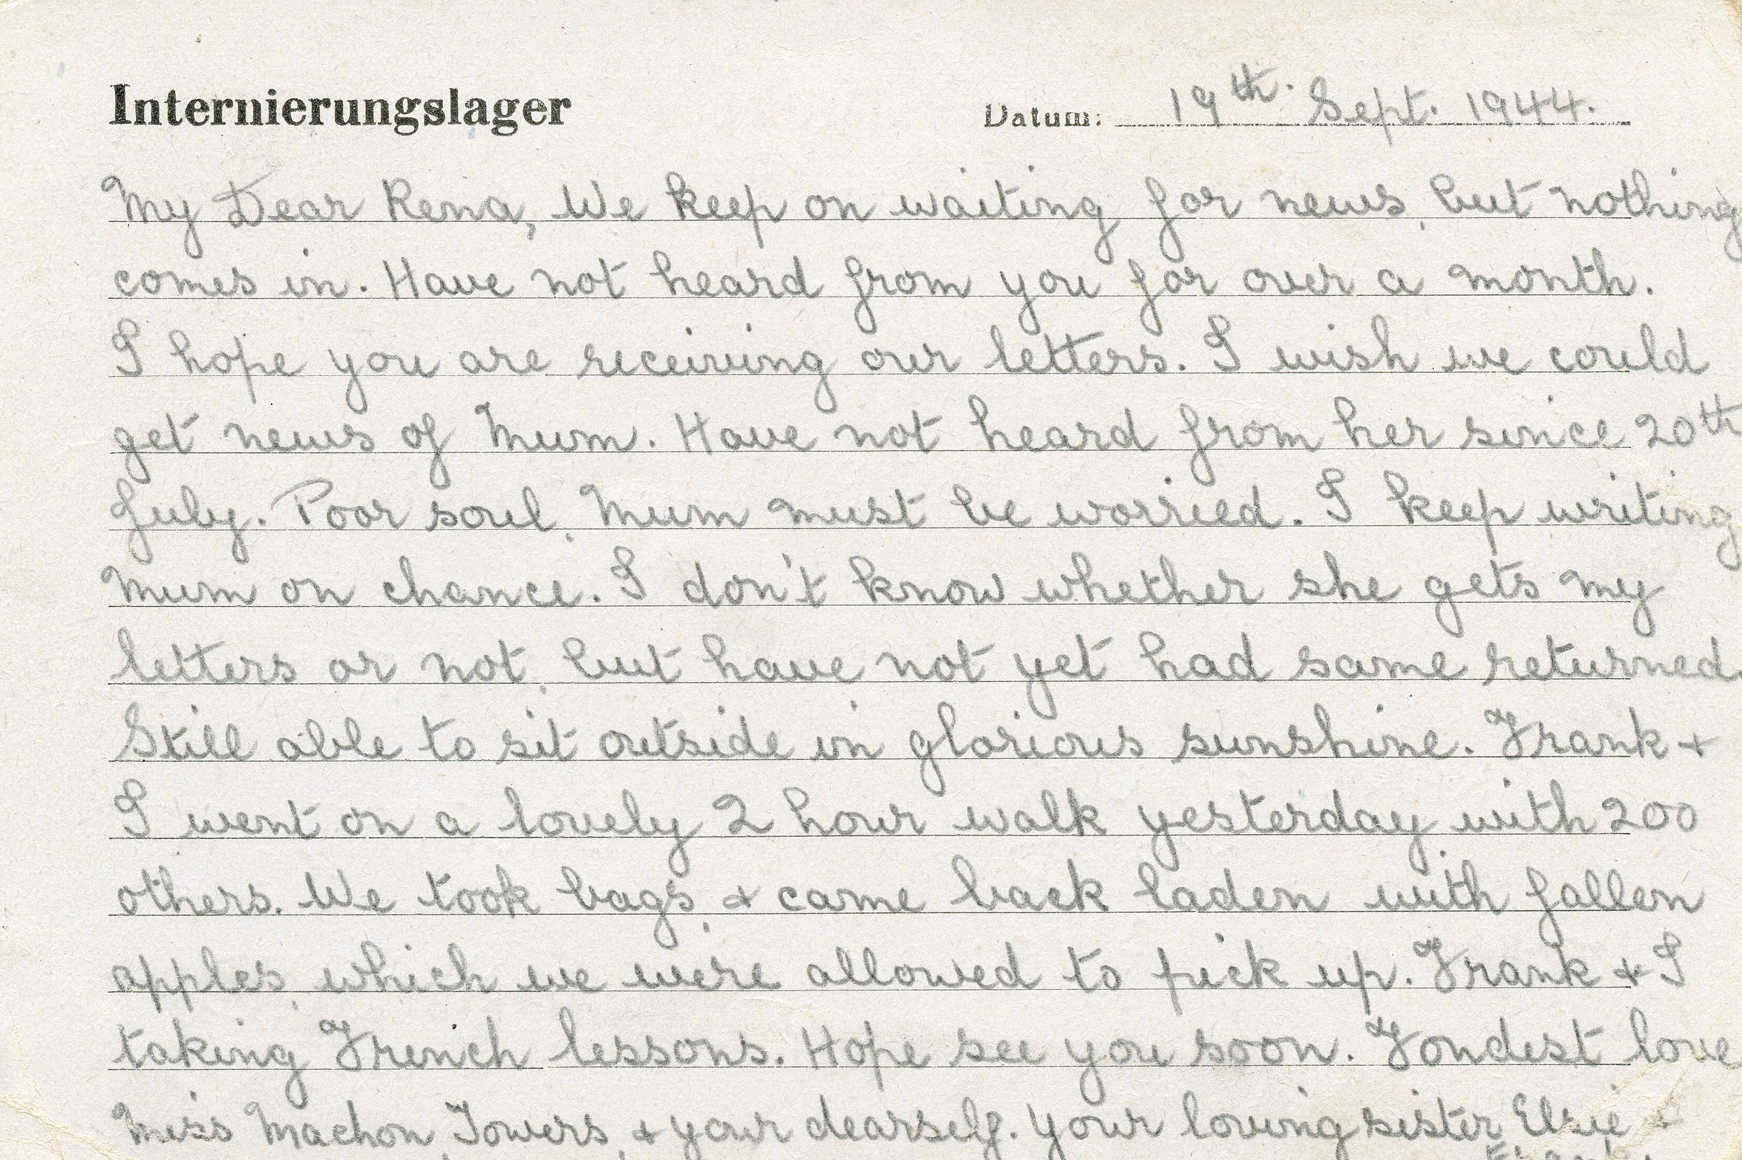 Internierungslager Datum: 19th. Sept. 1944.
My Dear Rena, We keep on waiting for news, but nothing
comes in. Have not heard from you for over a month.
I hope you are receiving our letters. I wish we could
get news of Mum. Have not heard from her since 20th
July. Poor soul, Mum must be worried. I keep writing
Mum on chance. I don't know whether she gets my
letters or not, but have not yet had same returned.
Still able to sit outside in glorious sunshine. Frank +
I went on a lovely 2 hour walk yesterday with 200
others. We took bags, + came back laden with fallen
apples, which we were allowed to pick up. Frank + I
taking French lessons. Hope see you soon. Fondest love
Miss Machon, Towers, + your dearself. Your loving sister Elsie